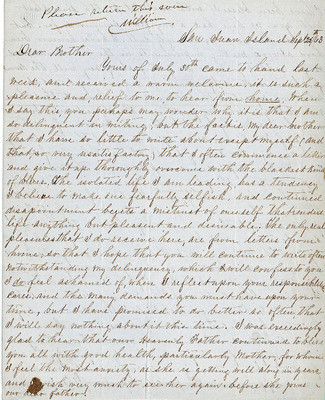 Please return this soon
William
San Juan Island Sept 25th 63
Dear Brother
Yours of July 30th came to hand last
week, and received a warm welcome, it is such a
pleasure and relief to me, to hear from home. When
I say this you perhaps may wonder why it is that I am
so delinquent in writing, but the fact is My dear brother
that I have so little to write about except myself (and
that so very unsatisfactory) that I often commence a letter
and give it up thoroughly overcome with the blackest kind
of blues. The isolated life I am leading, has a tendency
I believe to make one fearfully selfish, and continued
disappointment begets a mistrust of myself that makes
life anything but pleasant and desirable. the only real
pleasures that I do receive here, are from letters from
home, so that I hope that you will continue to write often
notwithstanding my delinquency, which I will confess to you
I do feel ashamed of, when I reflect upon your responsible
cares, and the many demands you must have upon your
time, but I have promised to do better so often that
I will say nothing about it this time. I was exceedingly
glad to hear that our Heavenly Father continued to bless
you all with good health, particularly Mother, for whom
I feel the most anxiety, as she is getting well along in years
and I wish very much to see her again before she joins
our dear father.